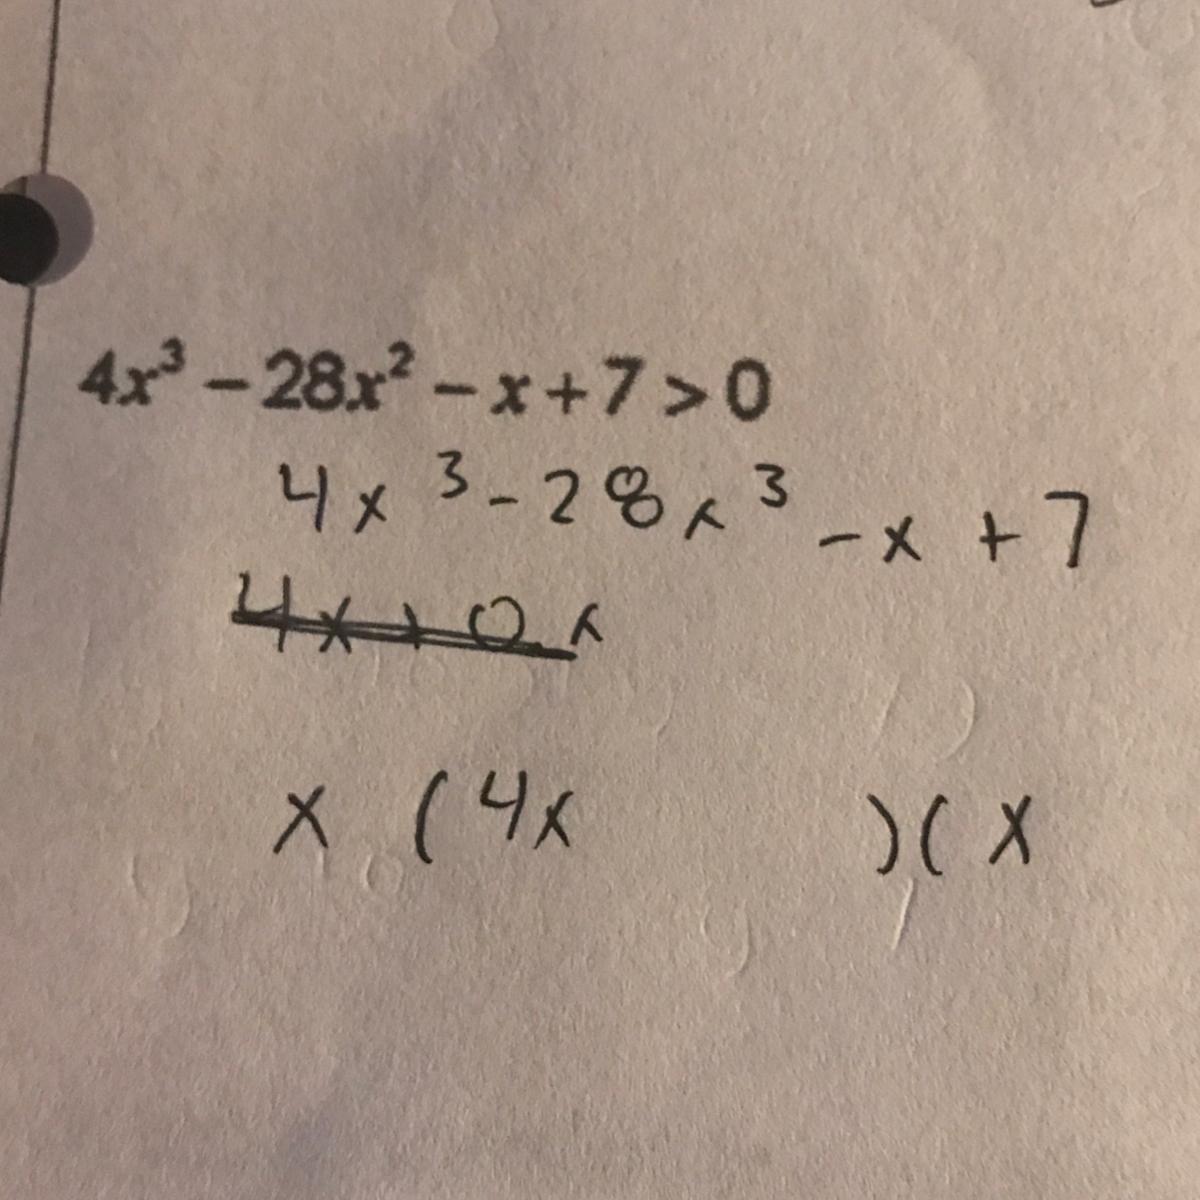 4x³ − 28x² − x + 7 > 0
4x³ - 28x³ - x + 7
4x + 0x
x (4x )( x